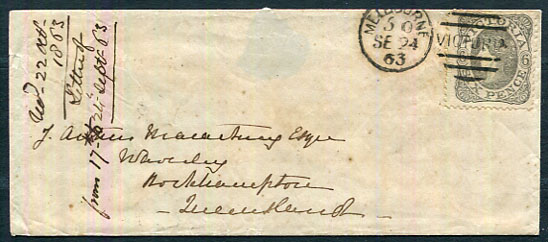 Recd 22 Oct
1863
Letter of
from 17th to 24 Sept 63
MELBOURNE
5 O
SE 24
63
VICTORIA
VICTORIA
SIX PENCE
J. Macartney Esqre
Waverley
Rockhampton
Queensland